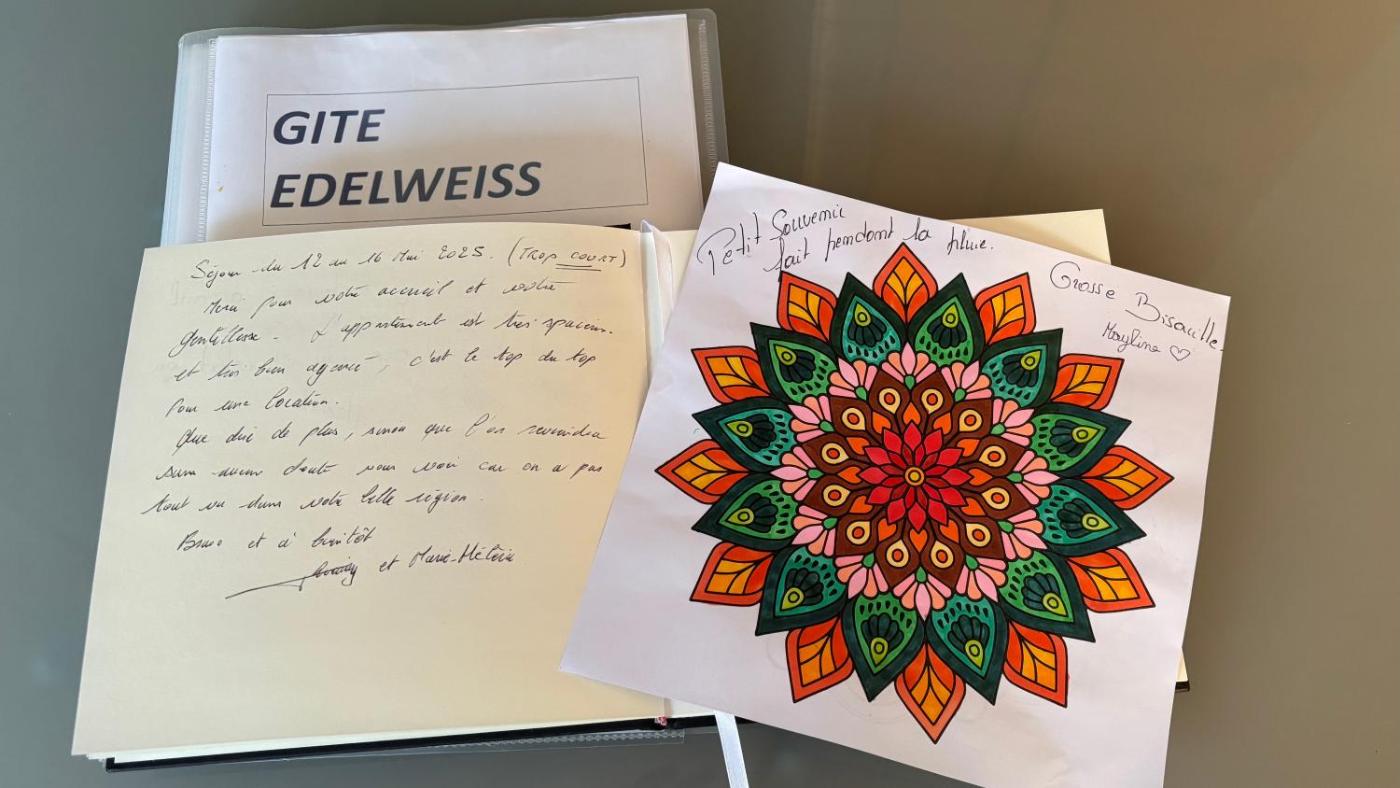 GITE
EDELWEISS
Séjour du 12 au 16 Mai 2025. (TROP COURT)
Merci pour votre accueil et votre
gentillesse. L'appartement est très spacieux.
et très bien agencé, c'est le top du top
pour une location.
Que dire de plus, sinon que l'on reviendra
sans aucun doute vous voir car on a pas
tout vu dans votre belle région.
Bravo et à bientôt
et Marie-Hélène
Petit Souvenir
fait pendant la pluie.
Grosse Bisouille.
Mayline ♡